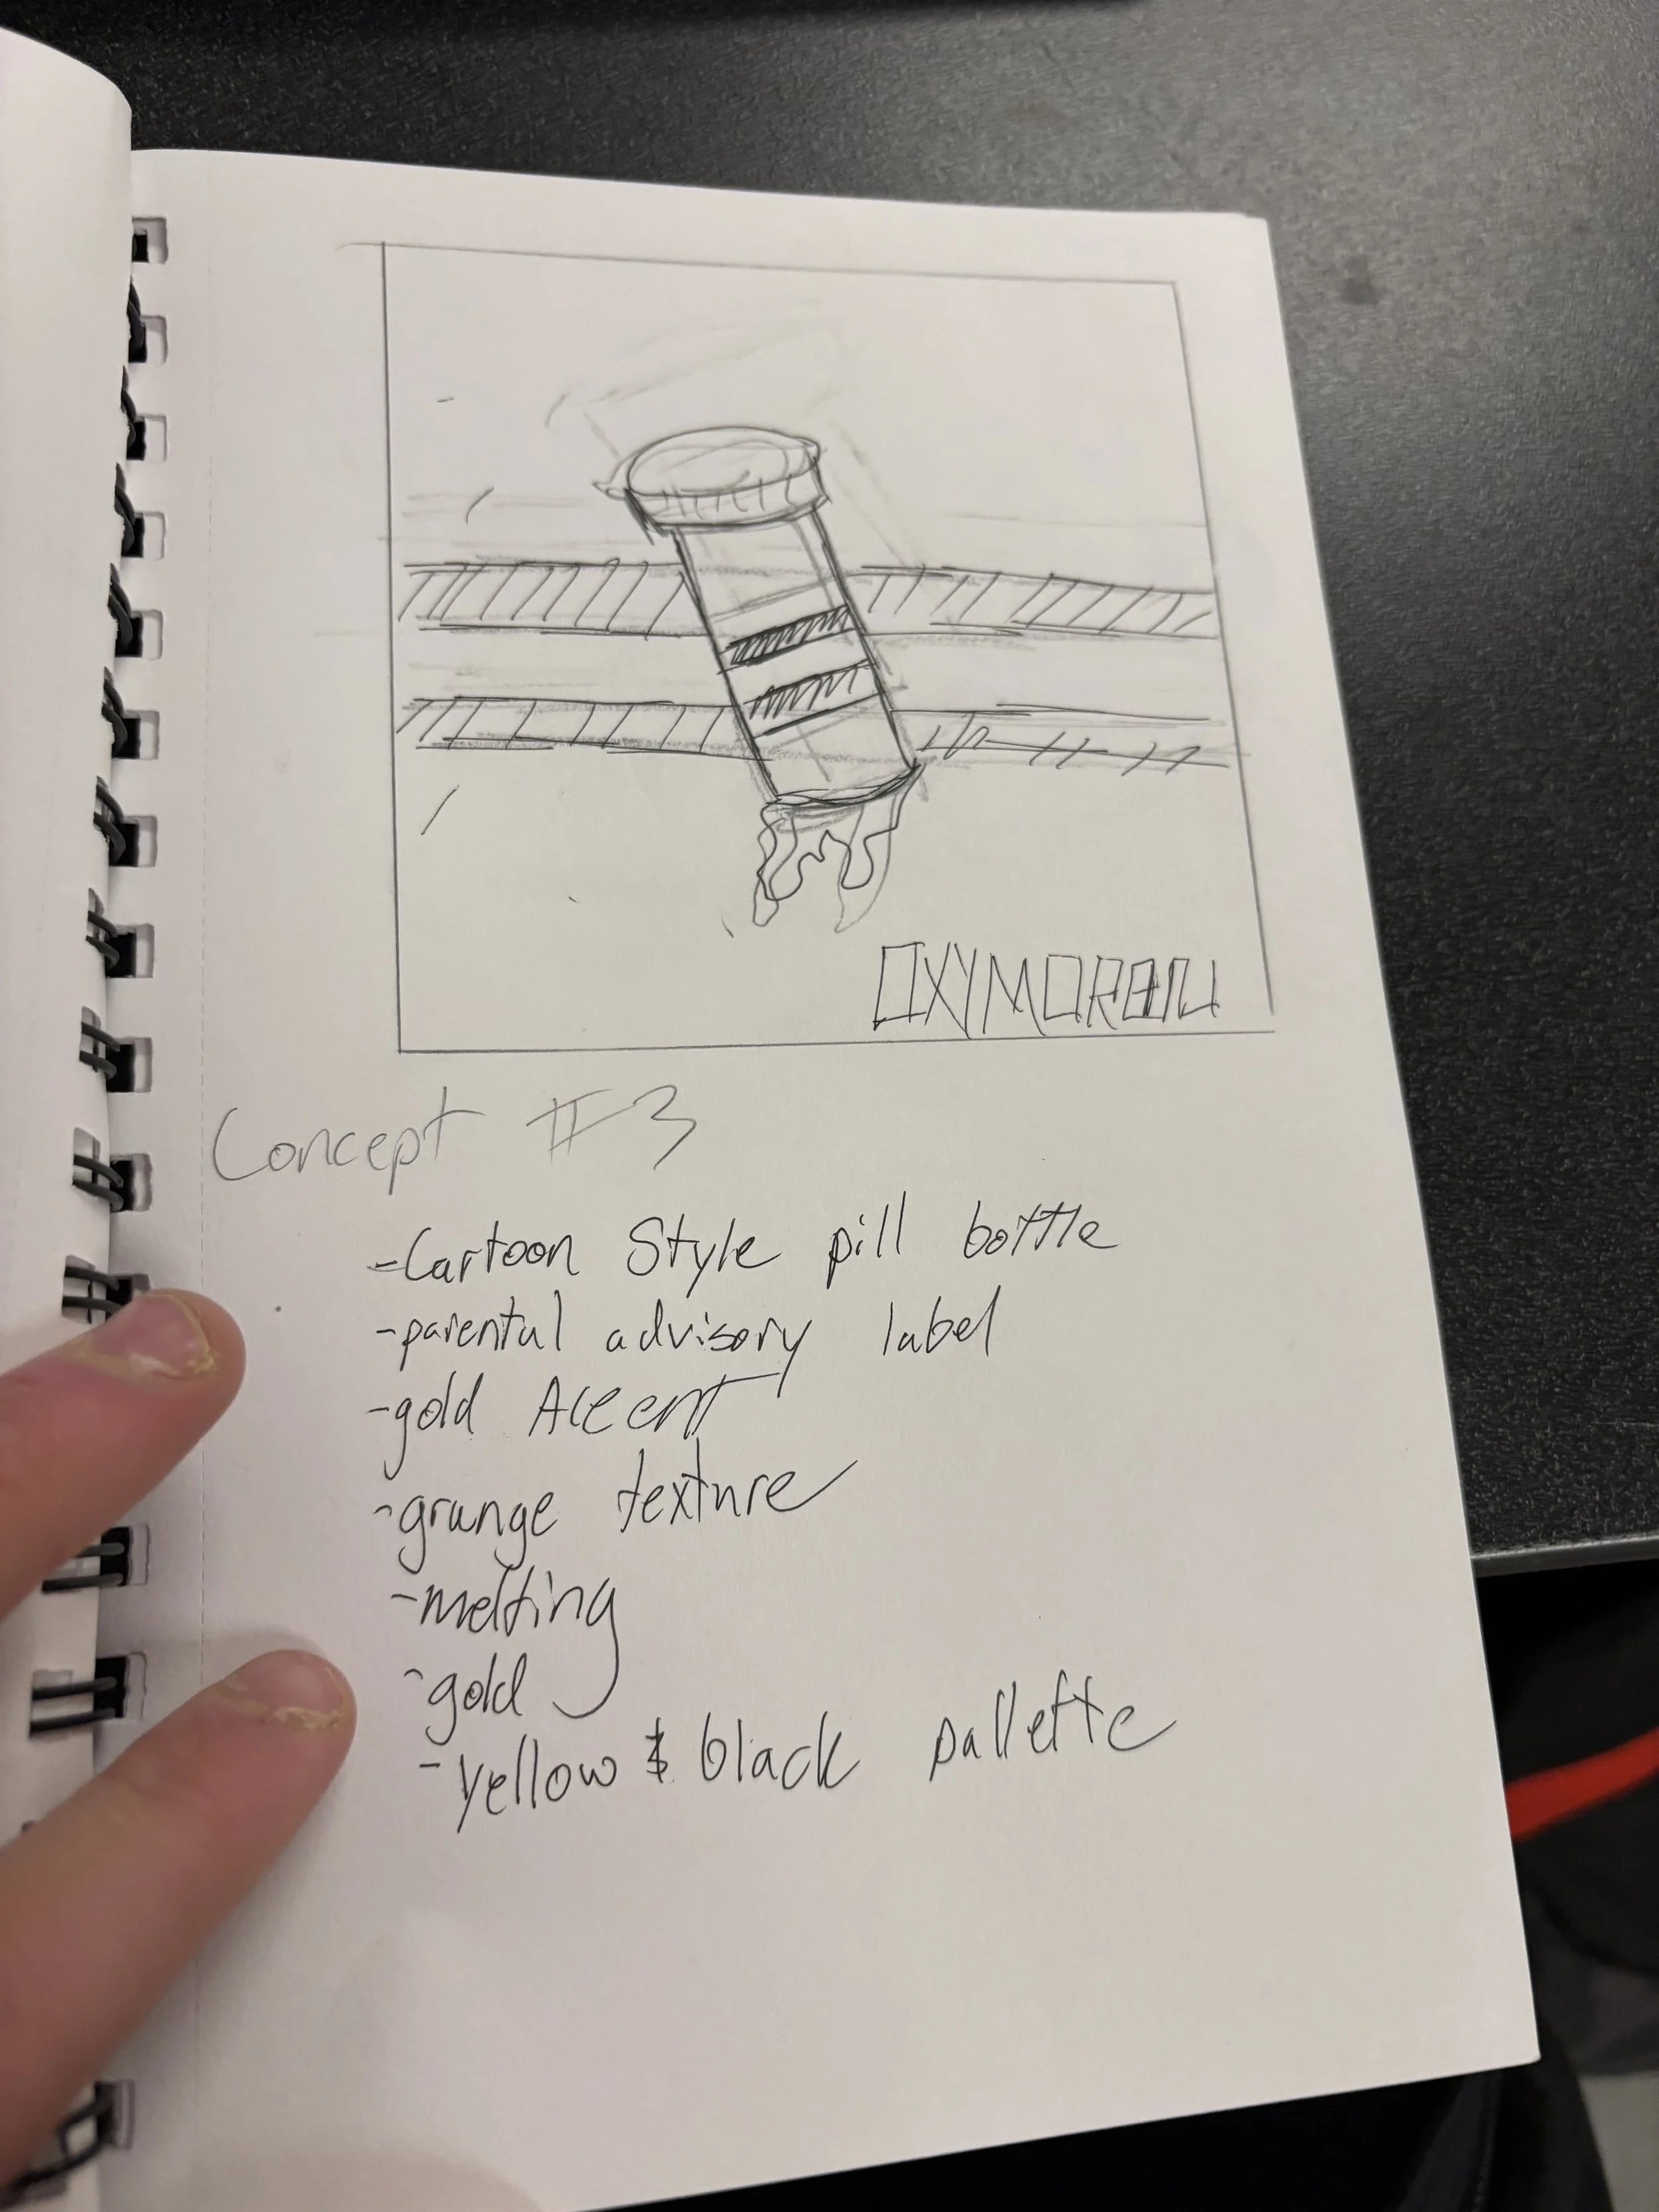 OXYMORON
Concept #3
-Cartoon Style pill bottle
-parental advisory label
-gold Accent
-grunge texture
-melting
-gold
-yellow & black pallette